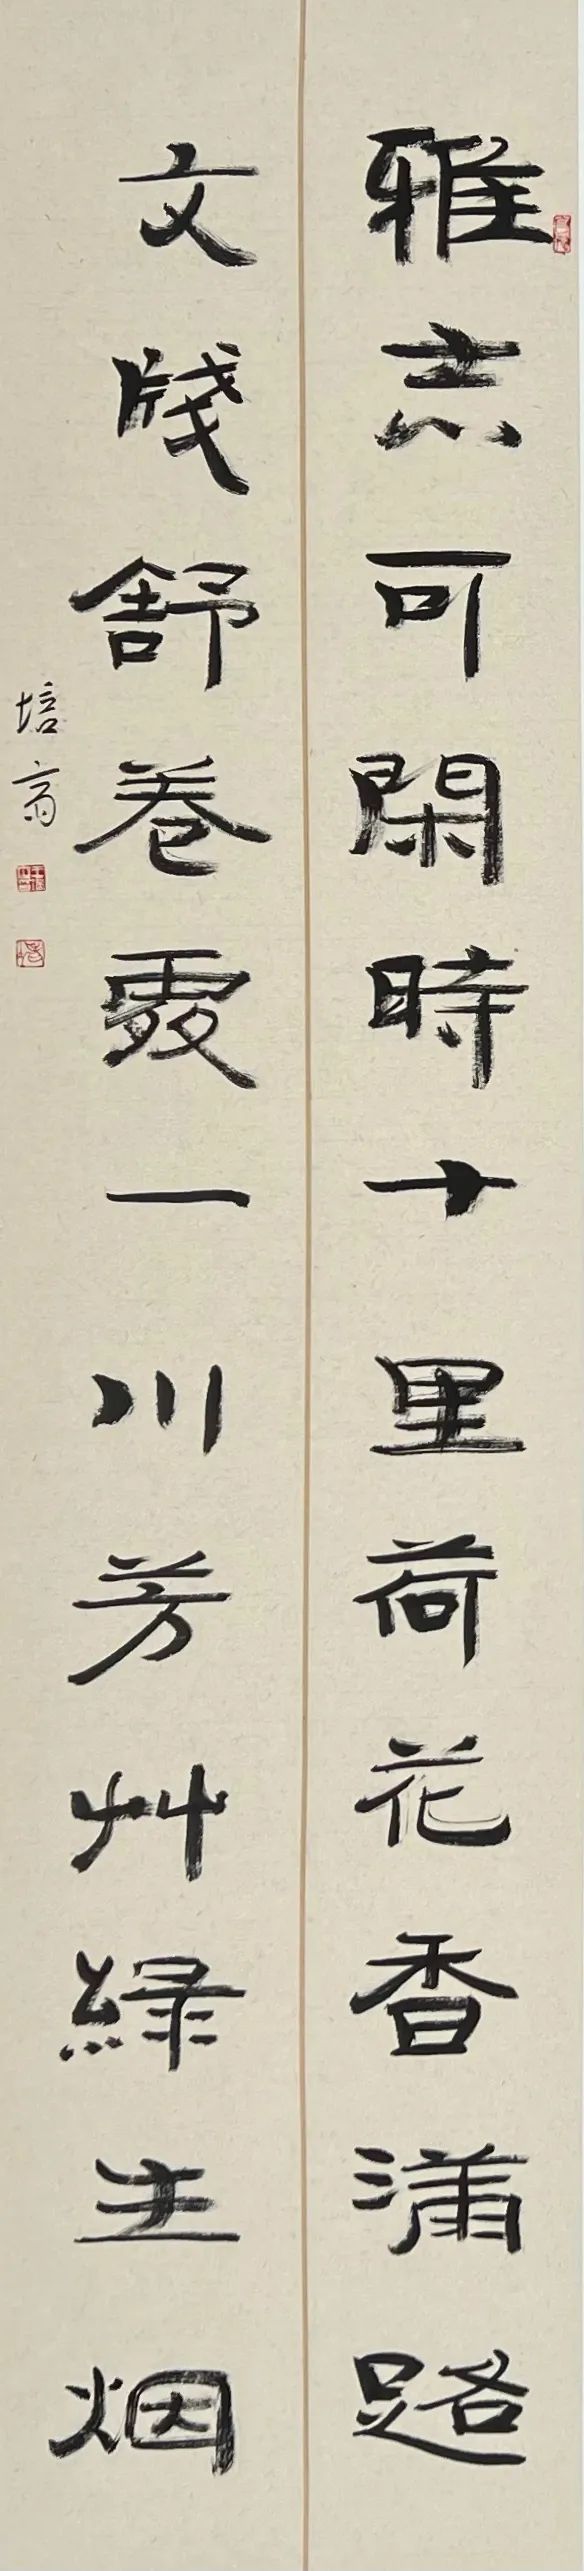 雅志可閑時十里荷花香滿路
文牋舒卷處一川芳艸綠生烟
培高